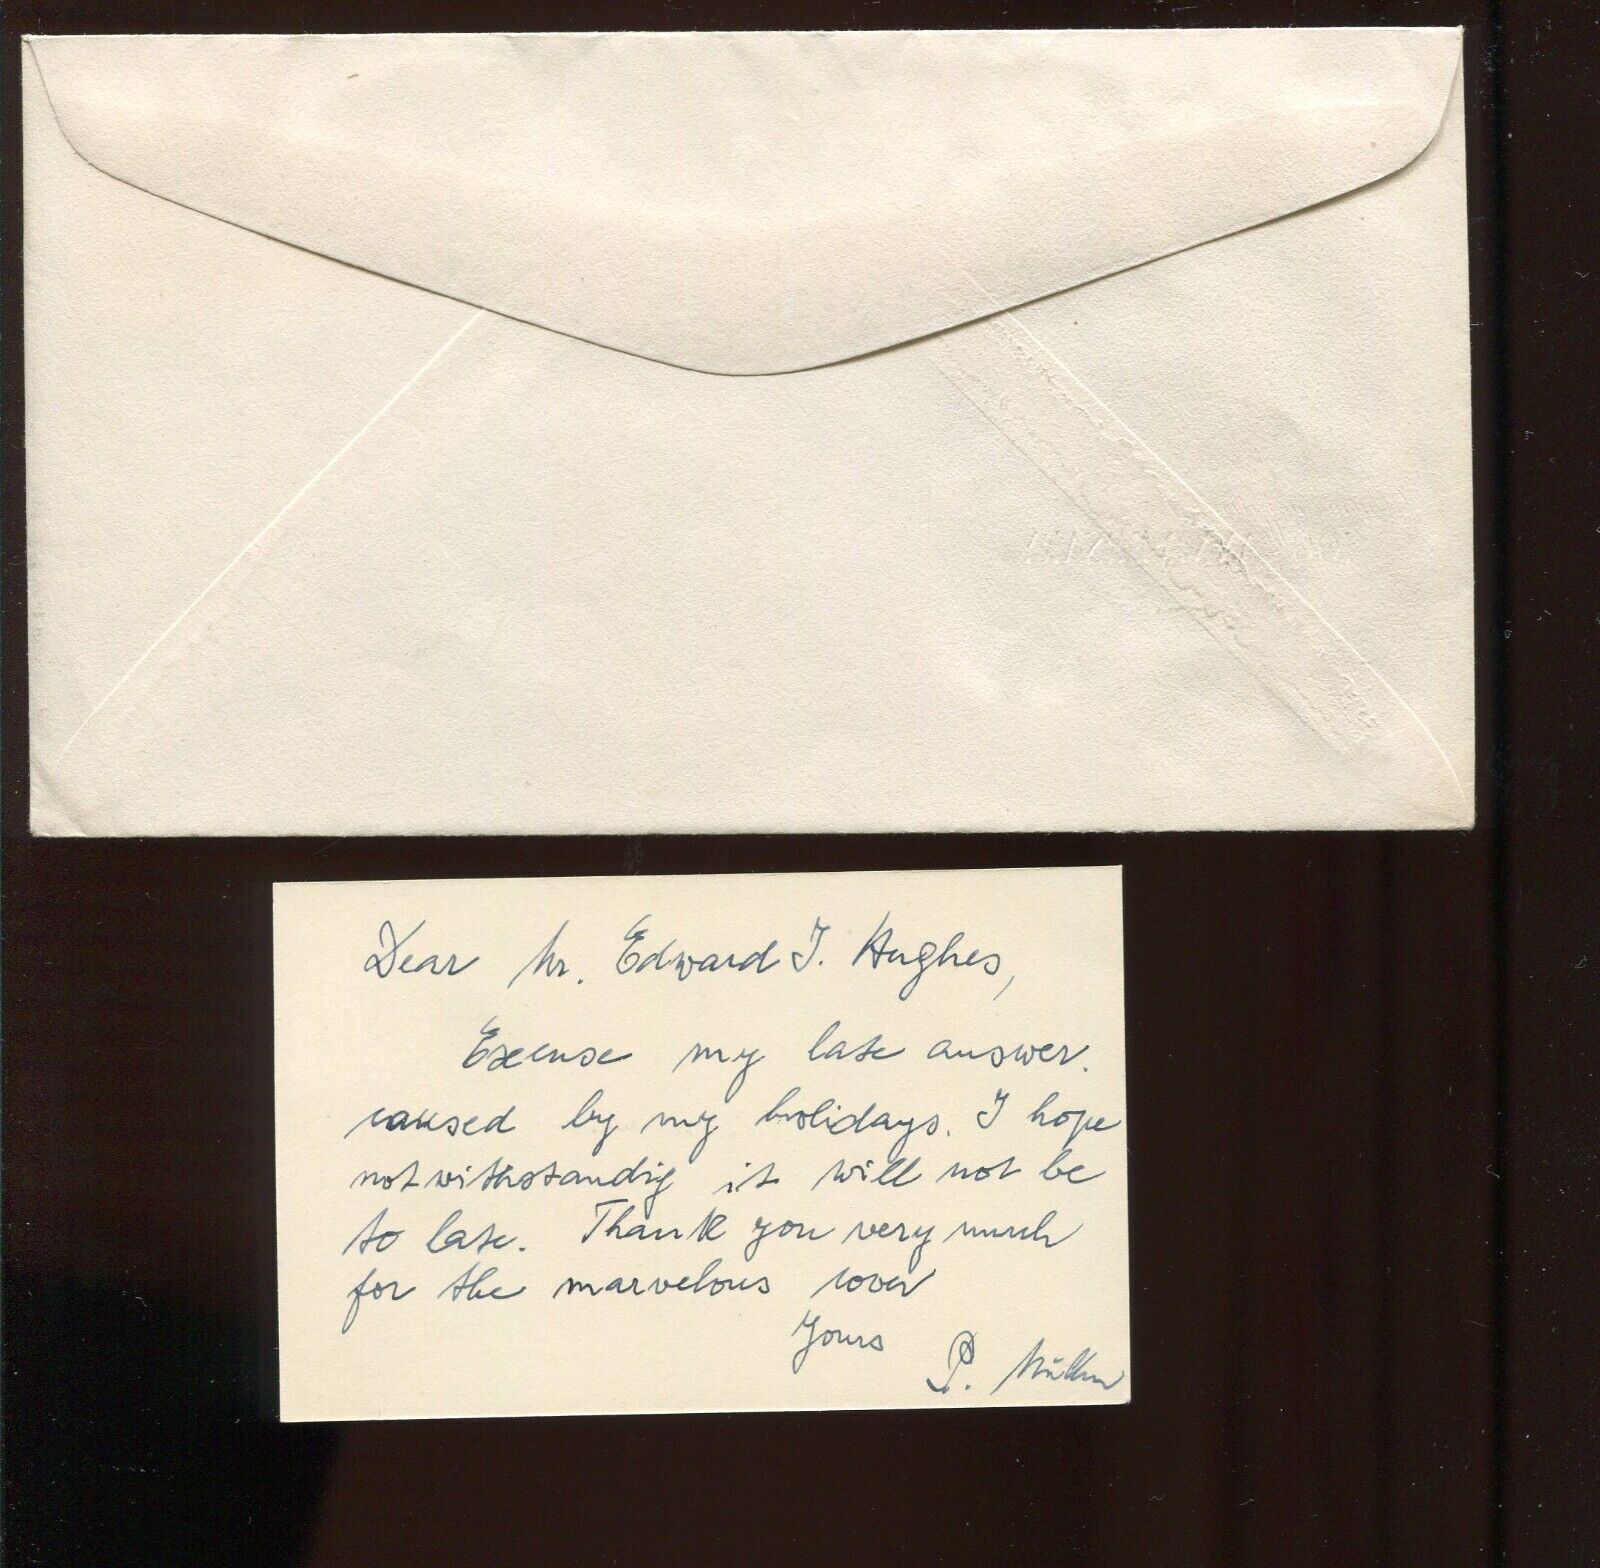 Dear Mr. Edward J. Hughes,
Excuse my late answer.
caused by my holidays. I hope
notwithstandig it will not be
to late. Thank you very much
for the marvelous cover
Yours
P. Müller